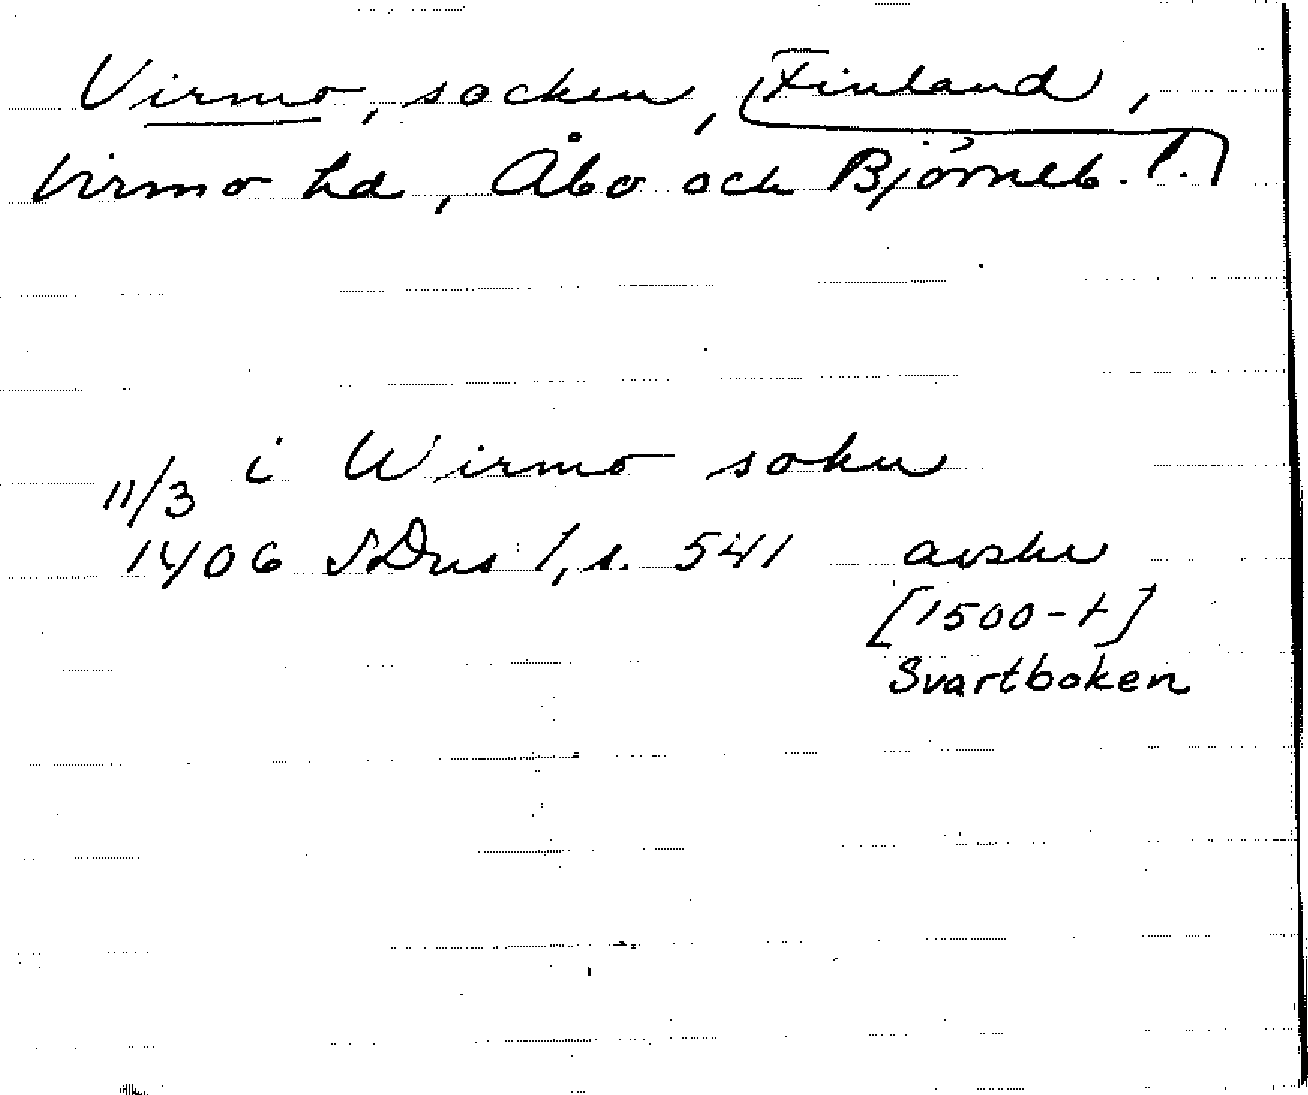 Virmo, socken, Finland,
Virmo hd, Åbo och Björneb. l.
i Wirmo sokn
11/3
1406 SDns 1, s. 541 avskr
[1500-t]
Svartboken